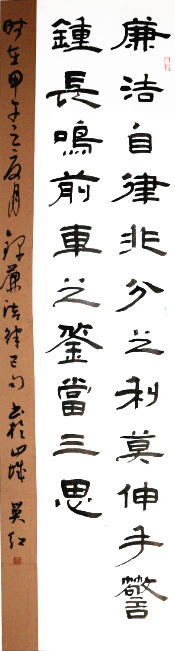 廉洁自律非分之利莫伸手警
鍾長鳴前車之鉴當三思
时在甲午之夏月録廉洁律己句书於山城 吴红